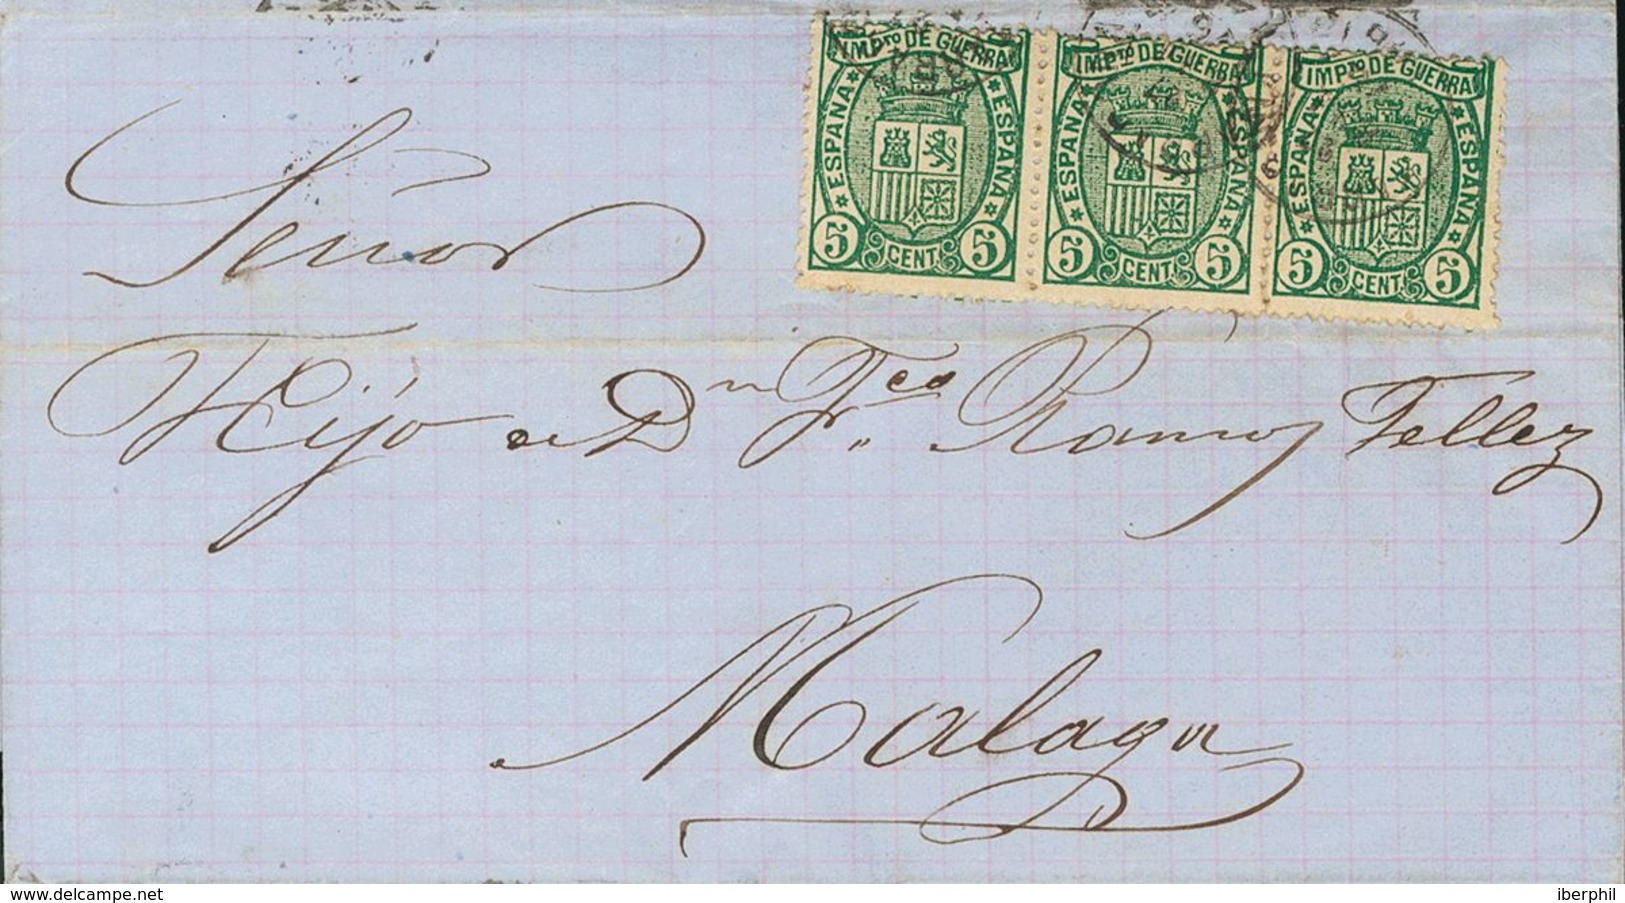 IMPto DE GUERRA IMPto DE GUERRA IMPto DE GUERRA
ESPAÑA ESPAÑA ESPAÑA ESPAÑA ESPAÑA ESPAÑA
5 CENT. 5 5 CENT. 5 5 CENT. 5
Señor
Hijo de Dn Frco Ramos Tellez
Malaga
delcampe.net
iberphil